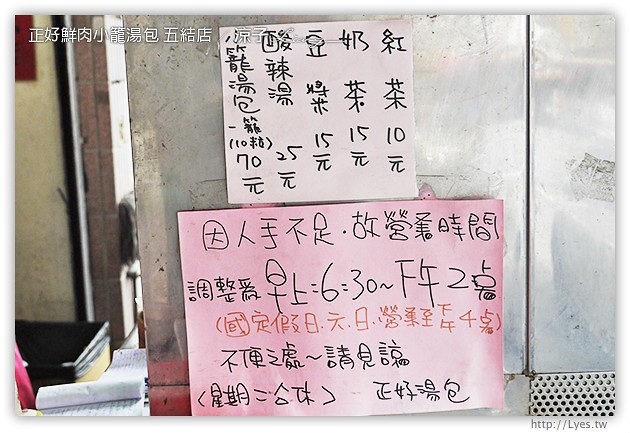 正好鮮肉小籠湯包 五結店
紅茶 10元
奶茶 15元
豆漿 15元
酸辣湯 25元
小籠湯包 一籠(10粒) 70元
因人手不足．故營業時間
調整為早上:6:30~下午2點
(國定假日.六.日.營業至下午4點)
不便之處~請見諒
(星期二公休) 正好湯包
http://Lyes.tw